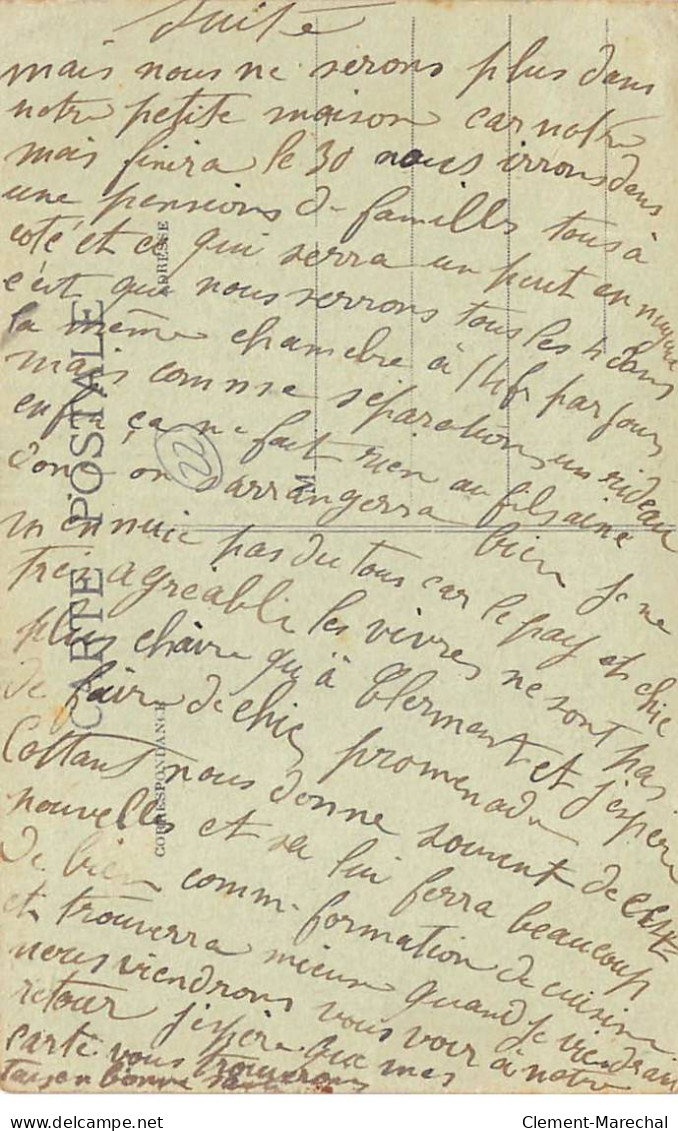 Suite
mais nous ne serons plus dans
notre petite maison car notre
mais finira le 30 nous irrons dans
une pensions de familles tous à
coté et ce qui serra un peut en
c'est que nous serrons tous les 4 dans
la même chambre à 14f par jours
mais comme séparations un rideau
enfin ça ne fait rien au fils
on s'arrangerra bien je ne
m'ennuie pas du tous car le pay et chic
très agréable les vivres ne sont pas
plus chaire qu'à Clermont et j'espère
de faire de chic promenade
Cottant nous donne souvent de
nouvelles et sa lui ferra beaucoup
de bien comm formation de cuisine
et trouverra mieux quand je viendrai
nous viendrons vous voir à notre
retour j'espère que mes
carte vous trouverons
tous en bonne santé
CARTE POSTALE
CORRESPONDANCE
ADRESSE
M
22
delcampe.net
Clement-Marechal